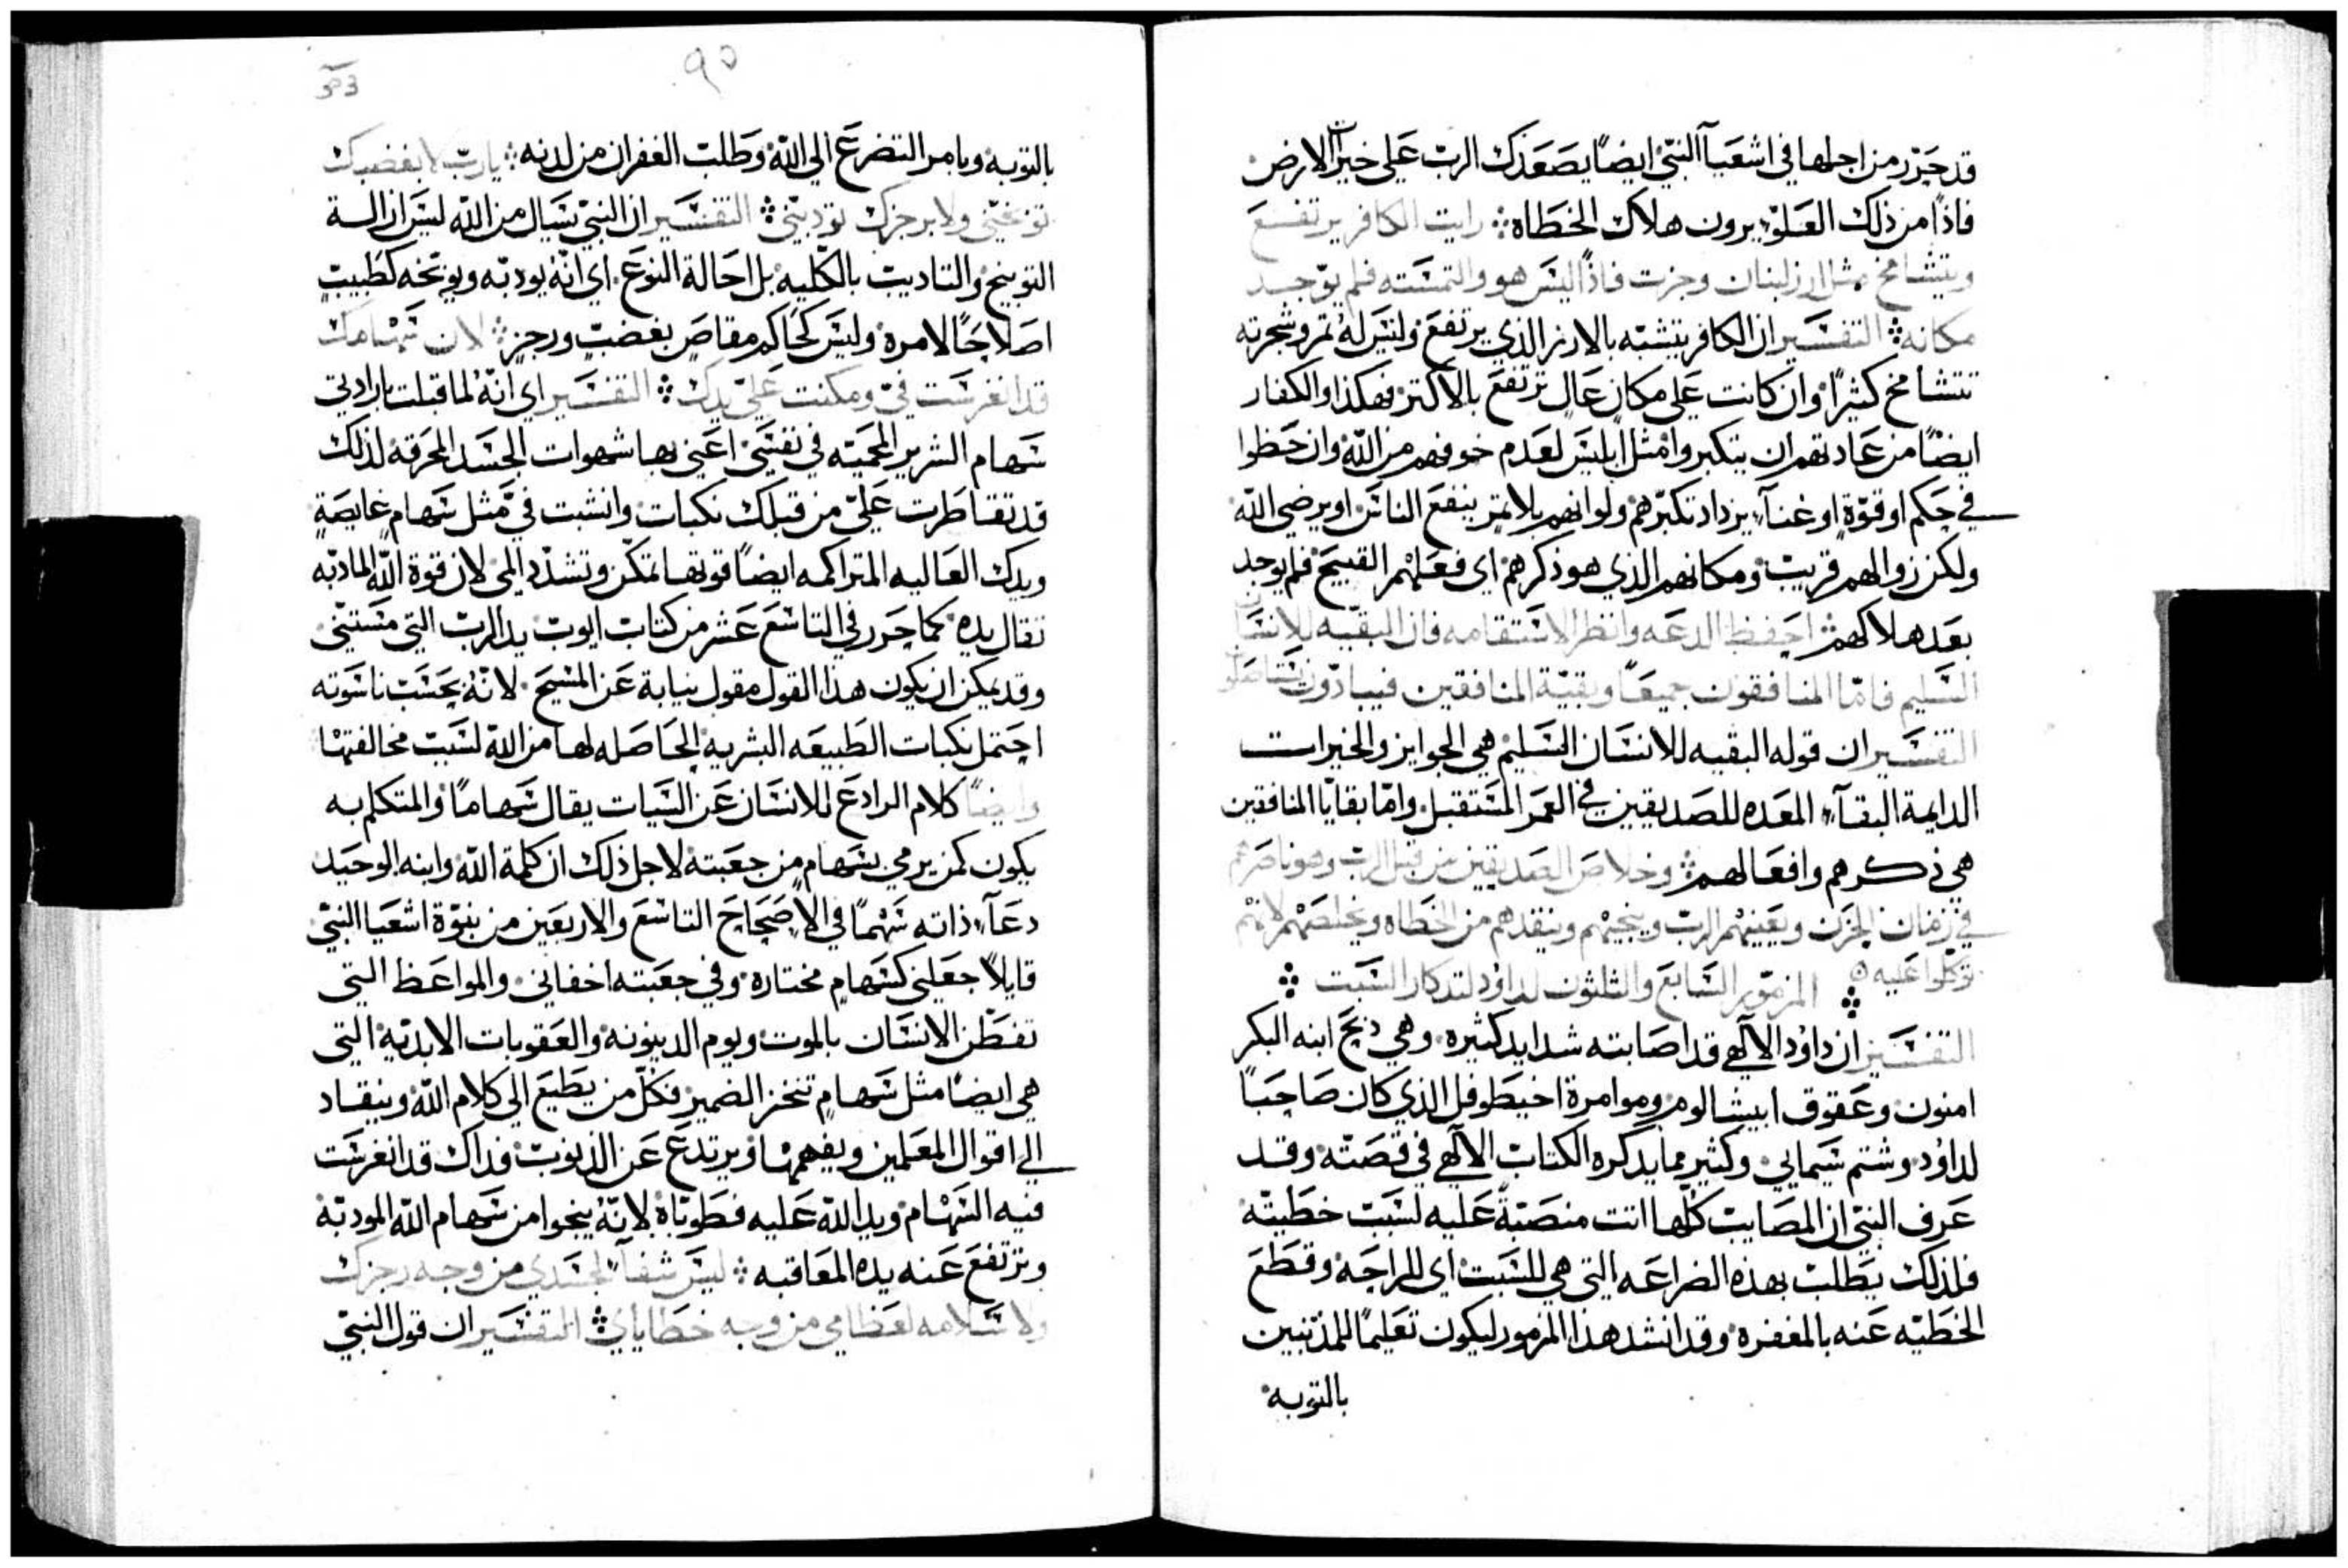 قد حرر من اجلها في اشعيآ النبي ايضاً يصعدك الرب على خيرات الارض
فاذاً من ذلك العلو يرون هلاك الخطاة ۞ رايت الكافر يرتفع
ويتشامخ مثل ارز لبنان وجزت فاذاً ليس هو والتمسته فلم يوجد
مكانه ۞ التفسير ان الكافر يتشبه بالارز الذي يرتفع وليس له ثمر وشجرته
تتشامخ كثيراً وان كانت على مكان عال ترتفع بالاكثر فهكذا والكفار
ايضاً من عادتهم ان يتكبروا مثل ابليس لعدم خوفهم من الله وان حظوا
في حكم او قوة او غنآء يزداد تكبرهم ولو انهم بلا ثمر ينفع الناس او يرضي الله
ولكن زوالهم قريب ومكانهم الذي هو ذكرهم اي فعلهم القبيح فلم يوجد
بعد هلاكهم ۞ احفظ الدعه وانظر الاستقامه فان البقيه للانسان
السليم فامّا المنافقون جميعاً وبقية المنافقين فيبادون
التفسير ان قوله البقيه للانسان السليم هي الجوايز والخيرات
الدايمة البقآء المعده للصديقين في العمر المستقبل وامّا بقايا المنافقين
هي ذكرهم وافعالهم ۞ وخلاص الصديقين من قبل الرب وهو ناصرهم
في زمان الحزن ويعينهم الرب وينجيهم وينقدهم من الخطاه ويخلصهم لانهم
توكلوا عليه ۞ المزمور السابع والثلثون لداود لتدكار السبت ۞
التفسير ان داود الالهي قد اصابته شدايد كثيره وهي ذبح ابنه البكر
امنون وعقوق ابيشالوم وموامرة اخيطوفل الذي كان صاحباً
لداود وشتم شيمايي وكثير مما يدكره الكتاب الالهي في قصته وقد
عرف النبي ان المصايب كلها اتت منصبة عليه لسبب خطيته
فلذلك يطلب بهذه الضراعه التي هي للسبت اي للراحه وقطع
الخطيه عنه بالمغفره وقد انشد هذا المزمور ليكون تعليماً للمذنبين
بالتوبه
٩٥
بالتوبه ويامر التضرع الى الله وطلب الغفران من لدنه ۞ يا رب لا بغضبك
توبخني ولا برجزك تودبني ۞ التفسير ان النبي يسال من الله ليس ازالة
التوبيخ والتاديب بالكليه بل احالة النوع اي انه يودبه ويوبخه كطبيب
اصلاحاً لامره وليس كحاكم مقاص بغضب ورجز ۞ لان سهامك
قد انغرست في ومكنت علي يدك ۞ التفسير اي انه لما قبلت بارادتي
سهام الشرير المحميه في نفسي اعني بها شهوات الجسد المحرقه لذلك
قد تقاطرت علي من قبلك نكبات وانشبت في مثل سهام غايصة
ويدك العاليه المتراكمه ايضاً قوتها تمكن وتشدد المي لان قوة الله المادبه
تقال يده كما حرر في التاسع عشر من كتاب ايوب يد الرب التي مستني
وقد يمكن ان يكون هذا القول مقول نيابة عن المسيح لانه بحسب ناسوته
احتمل نكبات الطبيعه البشريه الحاصله لها من الله لسبب مخالفتها
وايضاً كلام الرادع للانسان عن السيات يقال سهاماً والمتكلم به
يكون كمن يرمي بسهام من جعبته لاجل ذلك ان كلمة الله وابنه الوحيد
دعآء ذاته سهماً في الاصحاح التاسع والاربعين من نبوة اشعيا النبي
قايلاً جعلني كسهام مختاره وفي جعبته اخفاني والمواعظ التي
تفطن الانسان بالموت ويوم الدينونه والعقوبات الابديه التي
هي ايضاً مثل سهام تنخز الضمير فكل من يطيع الى كلام الله وينقاد
الى اقوال المعلمين ويفهمها ويرتدع عن الذنوب فداك قد انغرست
فيه السهام ويد الله عليه فطوباه لانه ينجوا من سهام الله المودبه
وترتفع عنه يده المعاقبه ۞ ليس شفآء لجسدي من وجه رجزك
ولا سلامه لعظامي من وجه خطاياي ۞ التفسير ان قول النبي